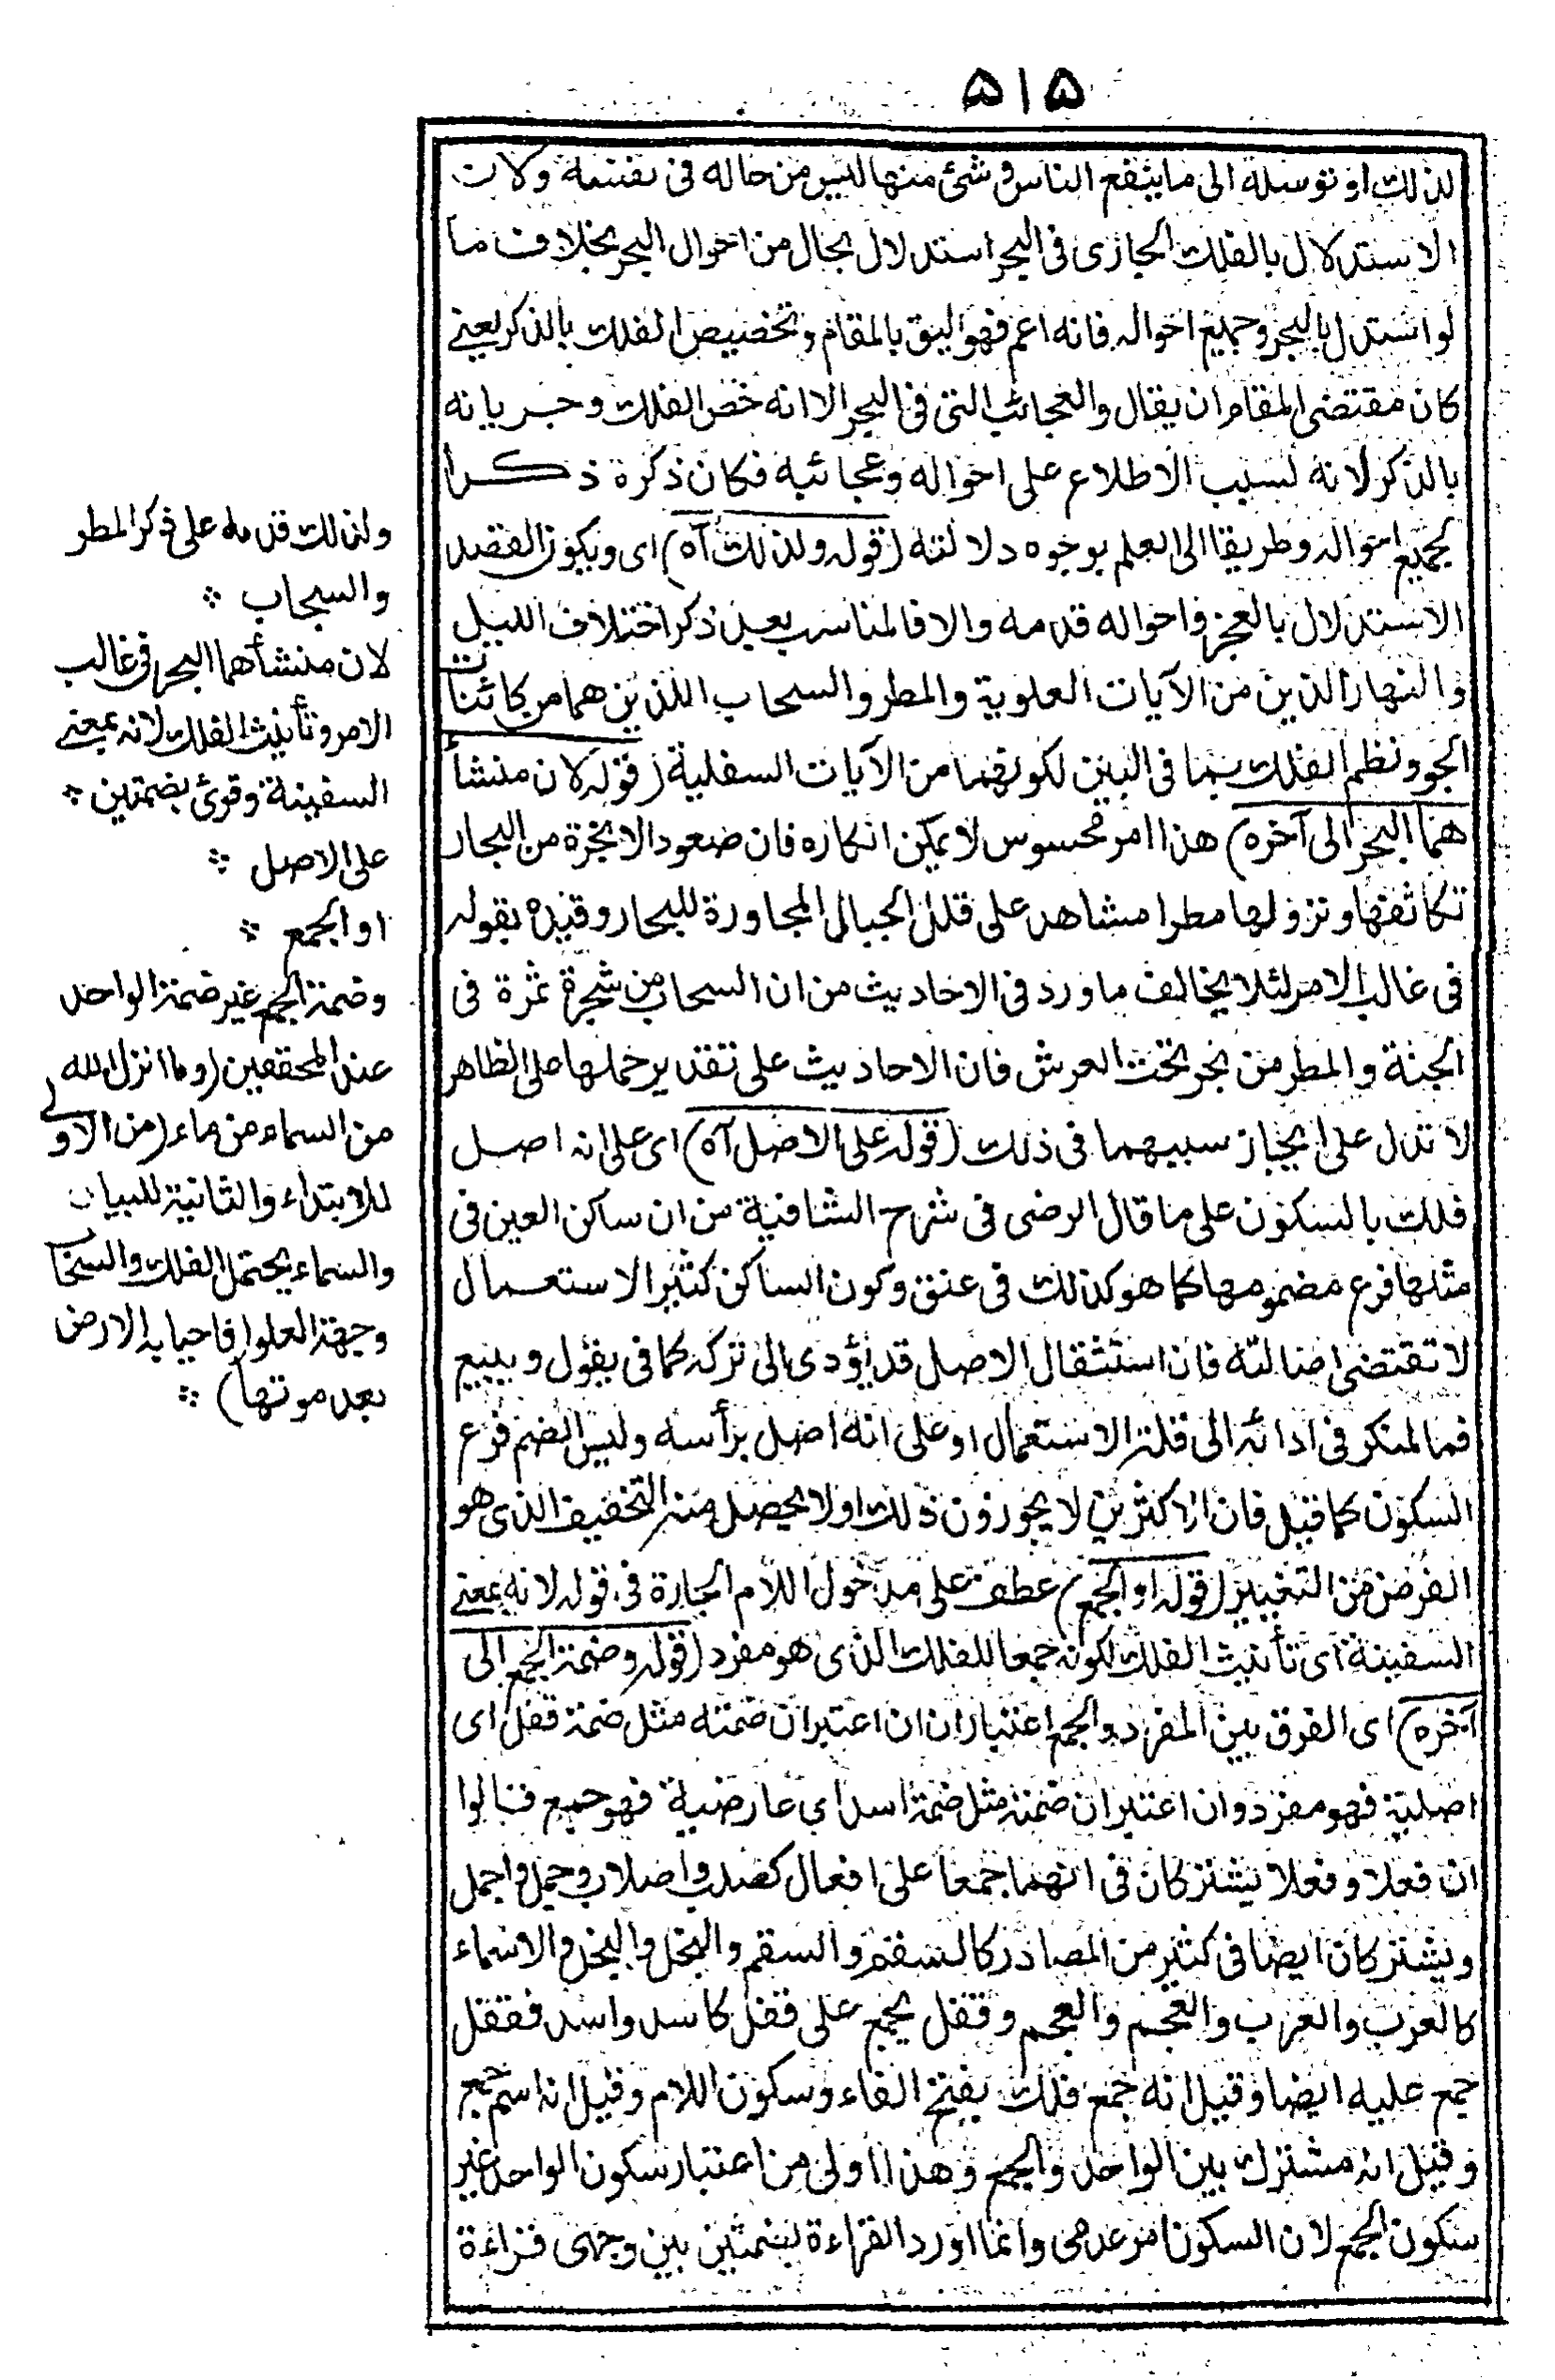 ٥١٥
لذلك او توسله الى ما ينفع الناس فى شئ منها ليس من حاله فى نفسه ولان
الاستدلال بالفلك الجارى فى البحر استدلال بحال من احوال البحر بخلاف ما
لو استدل بالبحر وجميع احواله فانه اعم فهو اليق بالمقام وتخصيص الفلك بالذكر يعنى
كان مقتضى المقام ان يقال والعجائب التى فى البحر الا انه خص الفلك وجريانه
بالذكر لانه لسبب الاطلاع على احواله وعجائبه فكان ذكره ذكرا
لجميع احواله وطريقا الى العلم بوجوه دلالته (قوله ولذلك آه) اى ويكون القصد
الاستدلال بالبحر واحواله قدمه والا فالمناسب بعد ذكر اختلاف الليل
والنهار الذين من الآيات العلوية والمطر والسحاب اللذين هما من كائنات
الجو ونظم الفلك بما فى البين لكونهما من الآيات السفلية (قوله لان منشأ
هما البحر الى آخره) هذا امر محسوس لا يمكن انكاره فان صعود الابخرة من البحار
تكاثفها ونزولها مطرا مشاهد على قلل الجبال المجاورة للبحار وقيده بقوله
فى غالب الامر لئلا يخالف ما ورد فى الاحاديث من ان السحاب من شجرة ثمرة فى
الجنة والمطر من بحر تحت العرش فان الاحاديث على تقدير حملها على الظاهر
لا تدل على ايجاز سببهما فى ذلك (قوله على الاصل آه) اى على انه اصل
فلك بالسكون على ما قال الرضى فى شرح الشافية من ان ساكن العين فى
مثلها فرع مضمومها كما هو كذلك فى عنق وكون الساكن كثير الاستعمال
لا تقتضى اصالته فان استثقال الاصل قد يؤدى الى تركه كما فى يقول ويبيع
فما المنكر فى ادائه الى قلة الاستعمال او على انه اصل برأسه وليس الضم فرع
السكون كما قيل فان الاكثرين لا يجوزون ذلك اولا يحصل منه التخفيف الذى هو
الغرض من التغيير (قوله او الجمع) عطف على مدخول اللام الجارة فى قوله لانه بمعنى
السفينة اى تأنيث الفلك لكونه جمعا للفلك الذى هو مفرد (قوله وضمة الجمع الى
آخره) اى الفرق بين المفرد والجمع اعتباران ان اعتبران ضمته مثل ضمة قفل اى
اصلية فهو مفرد وان اعتبران ضمته مثل ضمة اسد اى عارضية فهو جمع قالوا
ان فعلا وفعلا يشتركان فى انهما جمعا على افعال كصلب واصلاب وحمل واحمل
ويشتركان ايضا فى كثير من المصادر كالسقم والسقم والبخل والبخل والاسماء
كالعرب والعرب والعجم والعجم وقفل يجمع على قفل كاسد واسد فقفل
جمع عليه ايضا وقيل انه جمع فلك بفتح الفاء وسكون اللام وقيل انه اسم جمع
وقيل انه مشترك بين الواحد والجمع وهذا اولى من اعتبار سكون الواحد غير
سكون الجمع لان السكون امر عدمى وانما اورد القراءة بضمتين بين وجهى قراءة
ولذلك قدمه على ذكر المطر
والسحاب *
لان منشأهما البحر فى غالب
الامر وتأنيث الفلك لانه بمعنى
السفينة وقرئ بضمتين *
على الاصل *
او الجمع *
وضمة الجمع غير ضمة الواحد
عند المحققين (وما انزل الله
من السماء من ماء) من الاولى
للابتداء والثانية للبيان
والسماء يحتمل الفلك والسحاب
وجهة العلو (فاحيا به الارض
بعد موتها) *